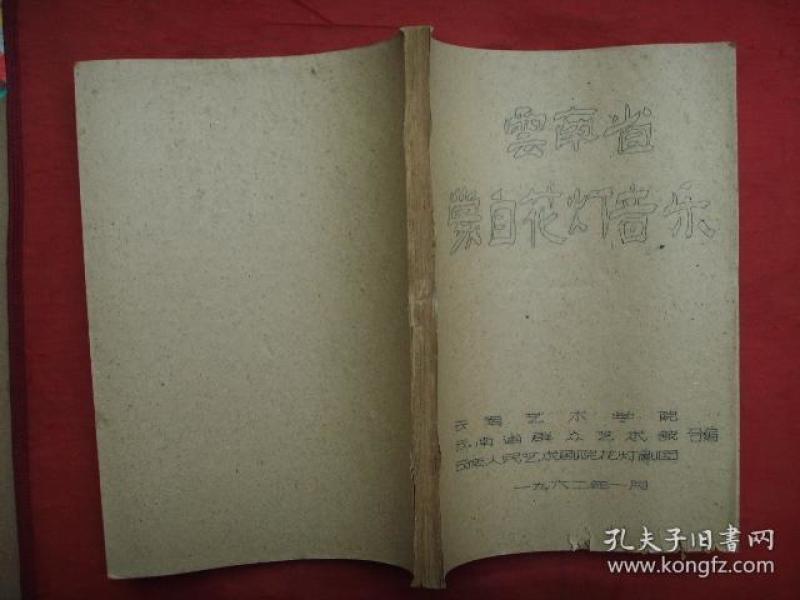 雲南省
蒙自花灯音乐
云南艺术学院
云南省群众艺术馆 合编
云南人民艺术剧院花灯剧团
一九六二年一月
孔夫子旧書网
www.kongfz.com